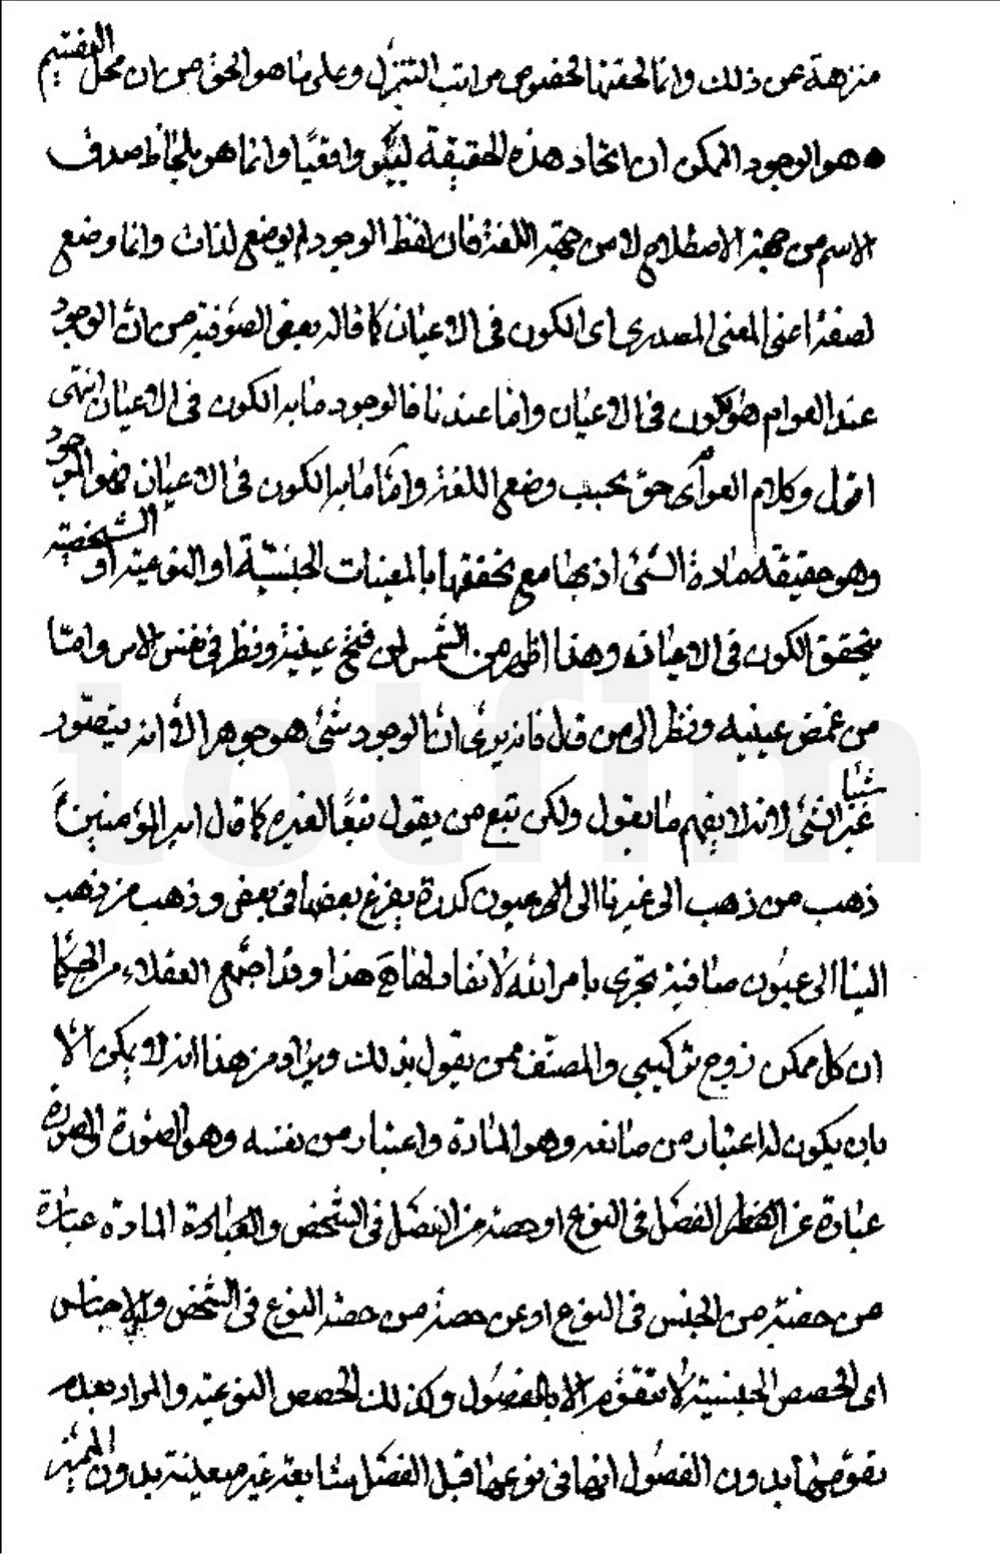 منزهة عن ذلك وانما لحقتها لخصوص مراتب التنزل وعلى ما هو الحق من ان محل التقسيم
هو الوجود الممكن ان اتحاد هذه الحقيقة ليس واقعيًا وانما هو بلحاظ صدق
الاسم من جهة الاصطلاح لا من جهة اللغة فان لفظ الوجود لم يوضع لذات وانما وضع
لصفة اعني المعنى المصدري اى الكون فى الاعيان كما قاله بعض الصوفية من ان الوجود
عند العوام هو الكون فى الاعيان واما عندنا فالوجود ما به الكون فى الاعيان انتهى
اقول وكلام العوام حق بحسب وضع اللغة وامّا ما به الكون فى الاعيان فهو الموجود
وهو حقيقة مادة الشئ اذ بها مع تحققها بالمعينات الجنسيّة او النوعية او الشخصية
يتحقق الكون فى الاعيان وهذا اظهر من الشمس لمن فتح عينيه ونظر فى نفس الامر وامّا
من غمض عينيه ونظر الى من قال فانه يرى ان الوجود شئ هو جوهر الّا انه يتصوّر شيئا
غير الشئ لانه لا يفهم ما يقول ولكن تبع من يقول تبعًا لغيره كما قال امير المؤمنين ع
ذهب من ذهب الى غيرنا الى عيون كدرة يفرغ بعضها فى بعض وذهب من ذهب
الينا الى عيون صافية تجرى بامر الله لا نفاد لها هذا وقد اجتمع العقلاء من الحكما
ان كل ممكن زوج تركيبي والمصنّف ممن يقول بذلك ويراد من هذا انه لا يمكن الّا
بان يكون له اعتبار من صانعه وهو المادة واعتبار من نفسه وهو الصورة والصورة
عبارة عن الفصل فى النوع او حصة من الفصل فى الشخص والمادة عبارة
عن حصة من الجنس فى النوع او عن حصة من حصة النوع فى الشخص والاجناس
اى الحصص الجنسية لا تتقوّم الا بالفصول وكذلك الحصص النوعية والمراد بعدم
تقوّمها بدون الفصول انها فى نوعها قبل الفصل شايعة غير معينة بدون المميّز
totfim